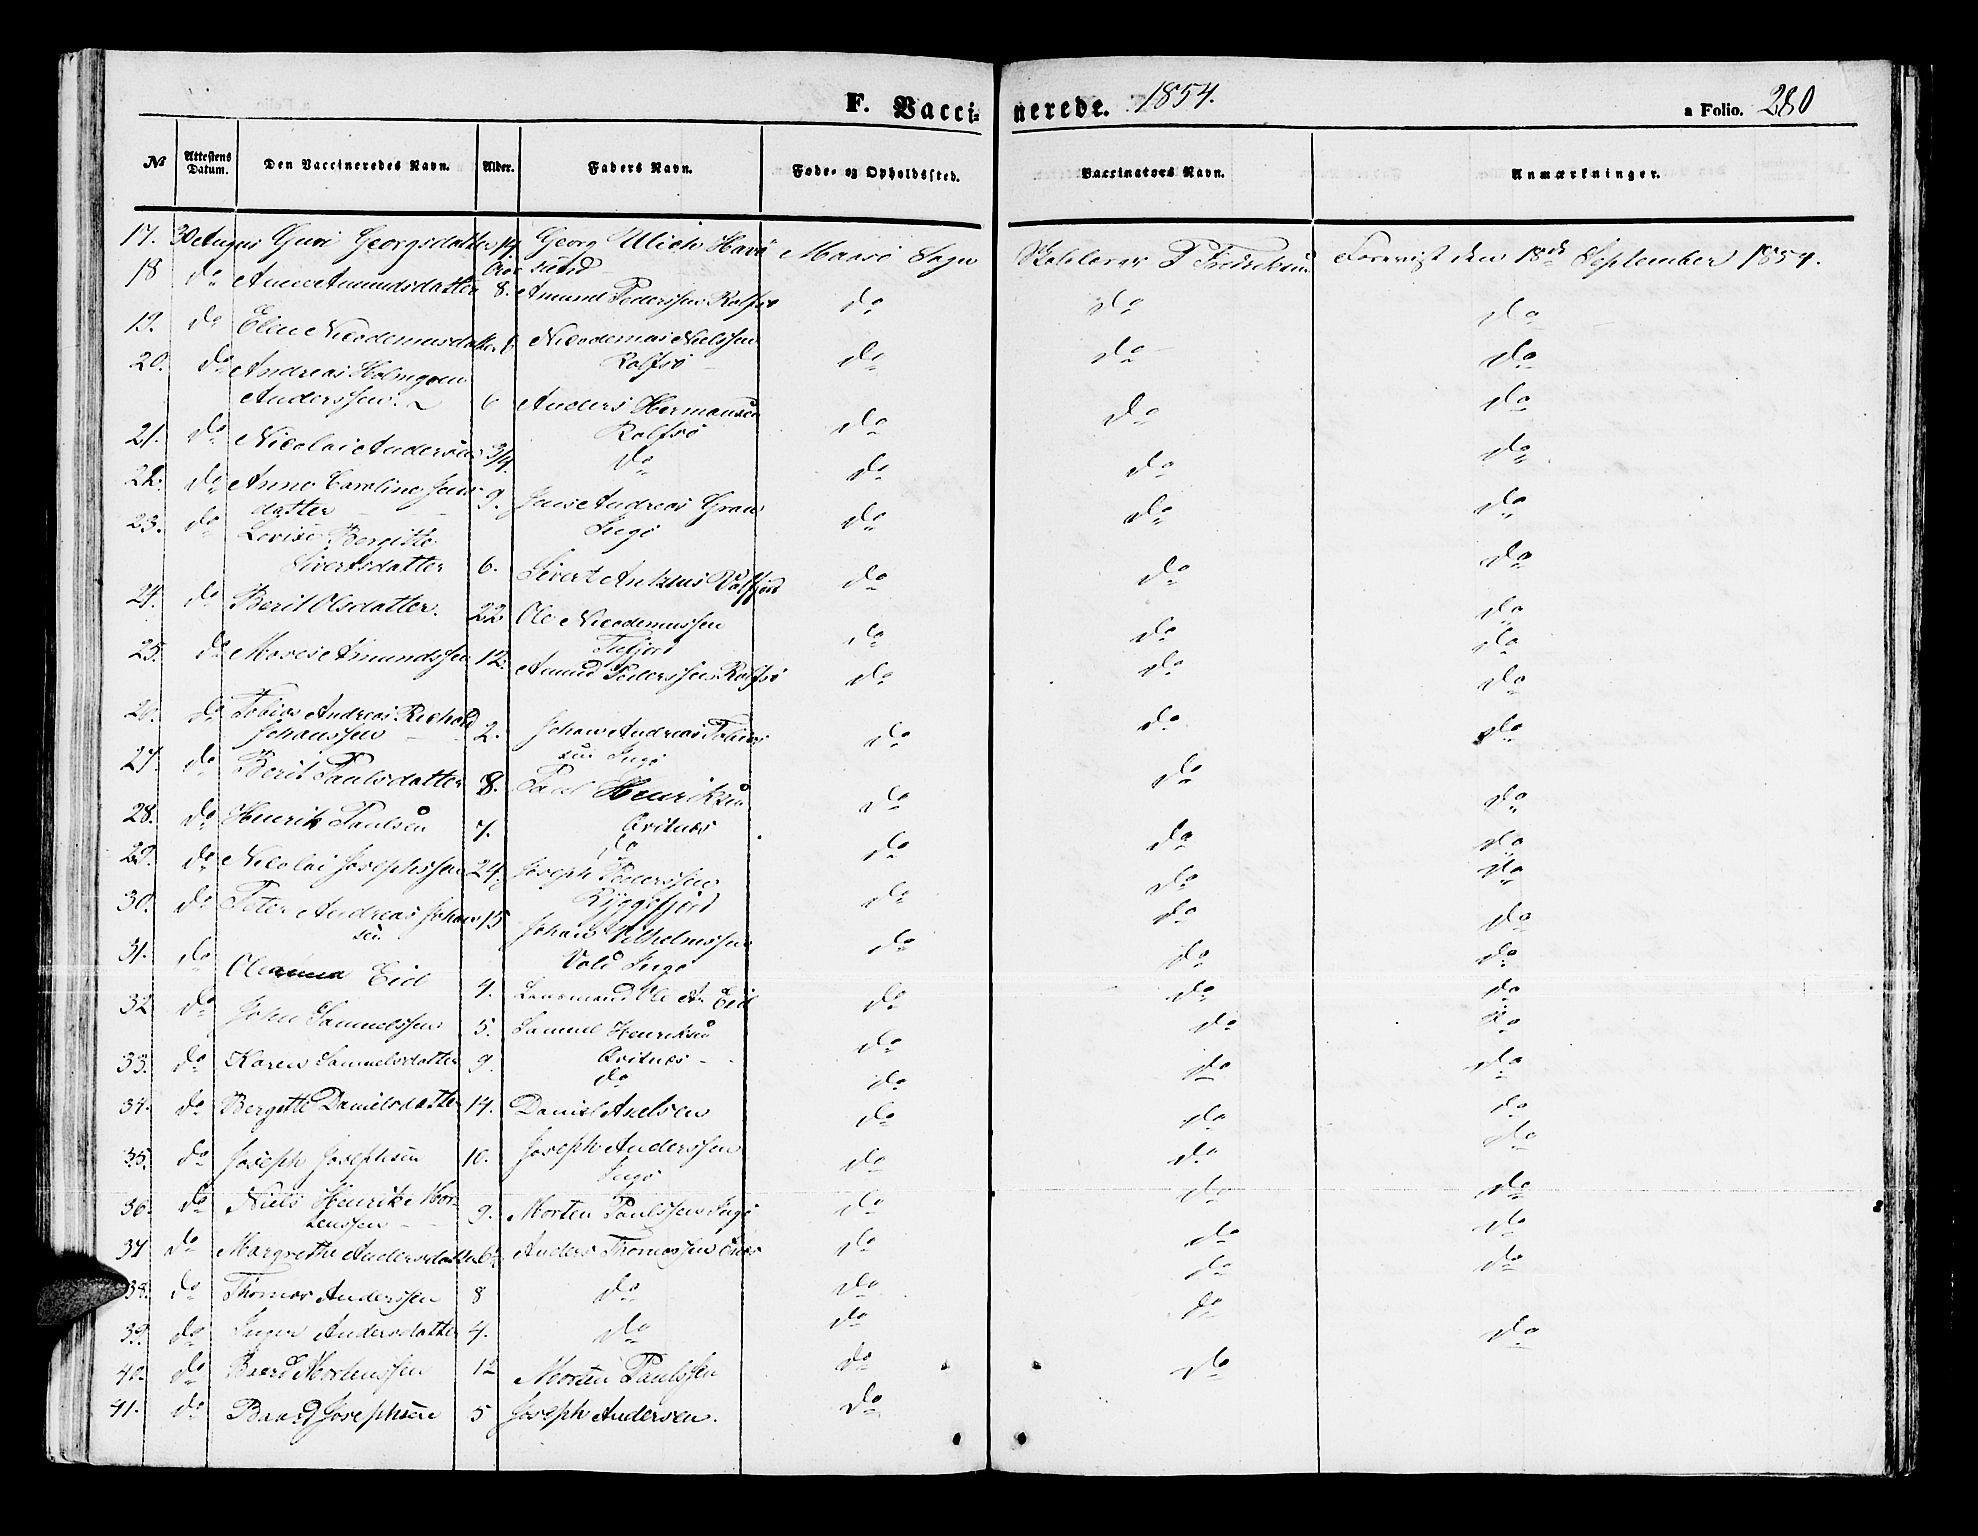 F. Vaccinerede. 1854. a Folio. 280
№ Attestens Datum. Den Vaccineredes Navn. Alder. Faders Navn. Føde- og Opholdssted. Vaccinators Navn. Anmærkninger.
17. 30 August Guri Georgsdatter Georg Ulich Havø Maasø Sogn P Fredriksen Forevist den 18de September 1854.
sund
18 do Anne Amundsdatter 8. Amund Pederssen Rolfsø do do do
19. do Eline Nicodemusdatter Nicodemus Nielssen do do do
Rolfsø
20. do Andreas Holmgren
Anderssen. 6 Anders Hermansen do do do
Rolfsø
21. do Nicolai Andersen 3/4. do do do do
22. do Anne Caroline Jens- 9. Jens Andreas Gran do do do
datter Ingø
23. do Lovise Bergitte
Sivertsdatter 6. Sivert do do do
24. do Berit Olsdatter. 22 Ole Nicodemussen do do do
Tufjord
25. do Amundssen 12. Amund Pederssen Rolfsø do do do
26. do Tobias Andreas Richard
Johanssen 2. Johan Andreas Tobias- do do do
sen Ingø
27. do Berit Paulsdatter 8. Paul Henriksen do do do
28. do Henrik Paulsen 7. do do do do
29. do Nicolai Josephssen 24. Joseph Pederssen do do do
Ryggefjord
30. do Peter Andreas Johan- 15 Johan Vilhelmssen do do do
sen Ingø
31. do Eid 4. Lensmand Ole An Eid do do do
32 do John Samuelssen 5. Samuel Henriksen do do do
33. do Karen Samuelsdatter 9. do do do do
34. do Bergitte Danielsdatter 14. Daniel Axelsen do do do
35. do Joseph Josephsen 10. Joseph Anderssen do do do
Ingø
36. do Niels Henrik Mor- 9. Morten Paulssen Ingø do do do
tenssen
37 do Margrethe Andersdatter Anders Thomassen do do do
38. do Thomas Anderssen 8 do do do do
39. do Inger Andersdatter 4. do do do do
40. do Baerd Mortenssen 12 Morten Paulssen do do
41. do Baard Josephsen 5 Joseph Andersen. do